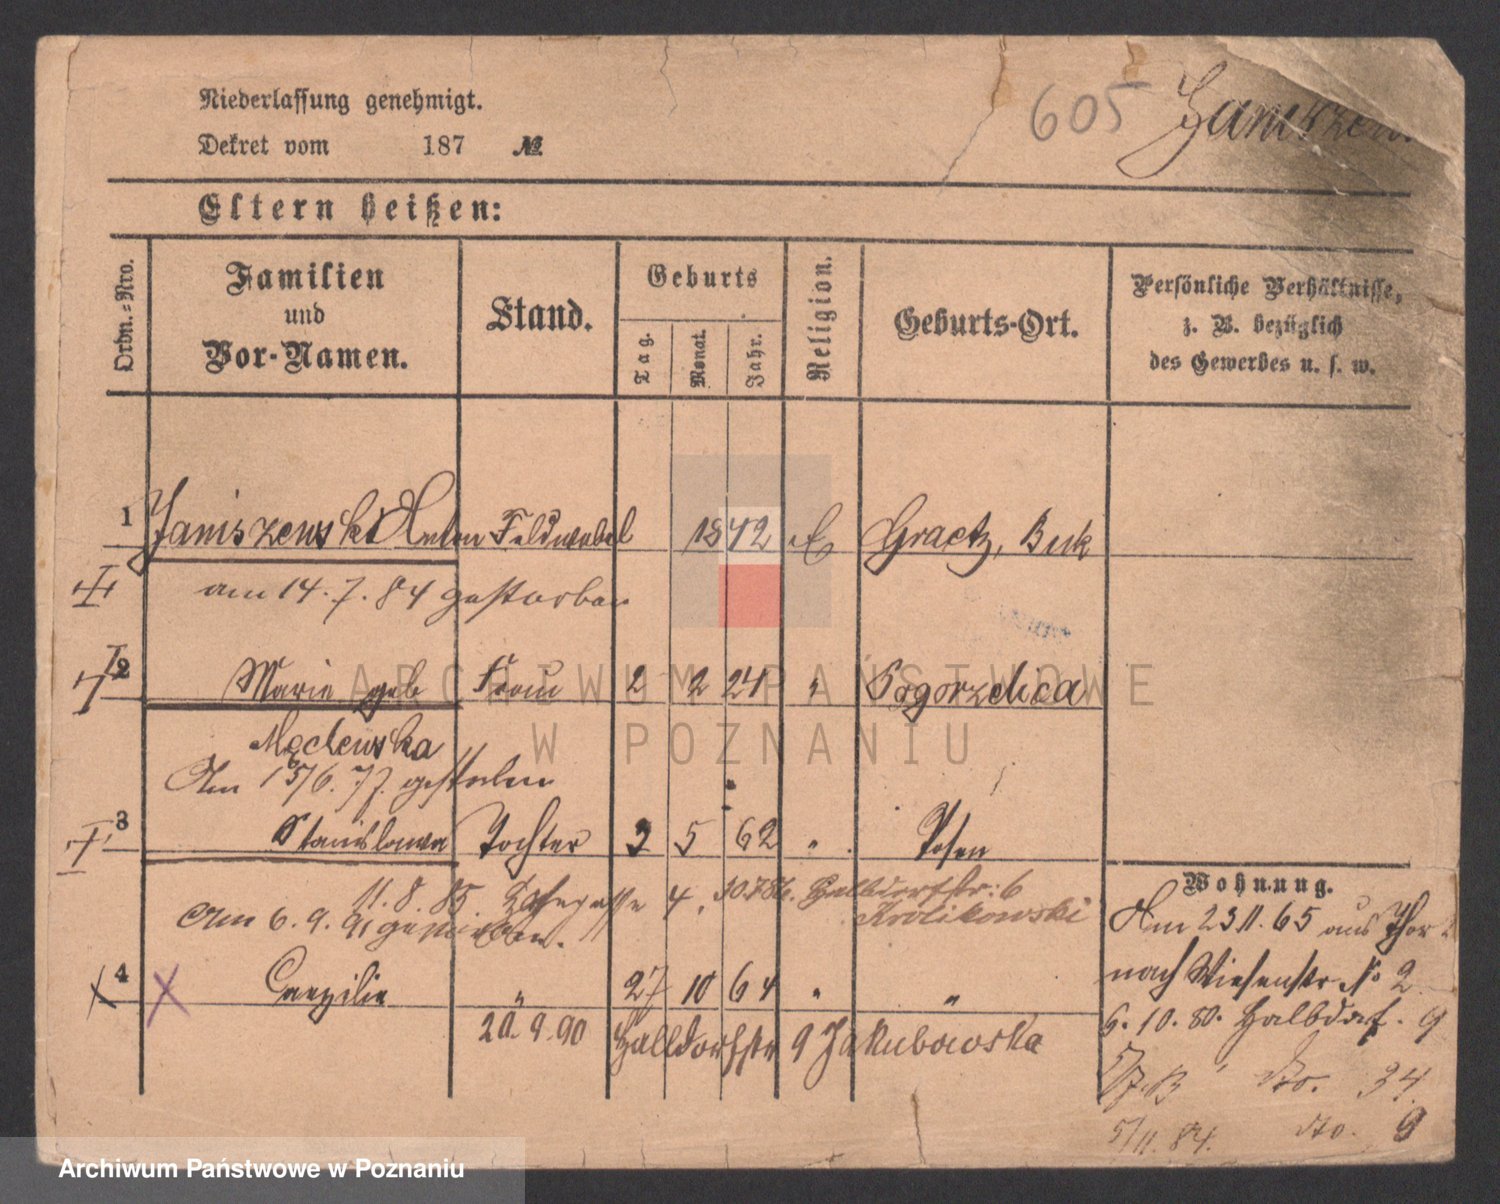 Niederlassung genehmigt.
605
Dekret vom 187 №
Eltern heißen:
Ordn.-Nro.
Familien
und
Vor-Namen.
Stand.
Geburts
Tag.
Monat.
Jahr.
Religion.
Geburts-Ort.
Persönliche Verhältnisse,
z. B. bezüglich
des Gewerbes u. s. w.
1 Janiszewski Anton Feldwebel 1842 C Graetz, Buk
am 14. 7. 84 gestorben
2 Marie geb Frau 2 2 24 " Pogorzelica
Am 15/6. 77. gestorben
3 Stanislawa Tochter 3 5 62 " Posen
Wohnung.
11. 8. 85. 4. 10.7.86. Halbdorfstr: 6
Krolikowski
Am 6. 9. 91 gestorben.
Am 23 11. 65 aus Thorn
nach Wiesenstr No 2
4 Caezilie " 27 10 64 " "
6. 10. 80. Halbdorf. 9
9. 90 Halbdorfstr 9 Jakubowska
do. 34.
5/11. 84. do. 9
ARCHIWUM PAŃSTWOWE
W POZNANIU
Archiwum Państwowe w Poznaniu